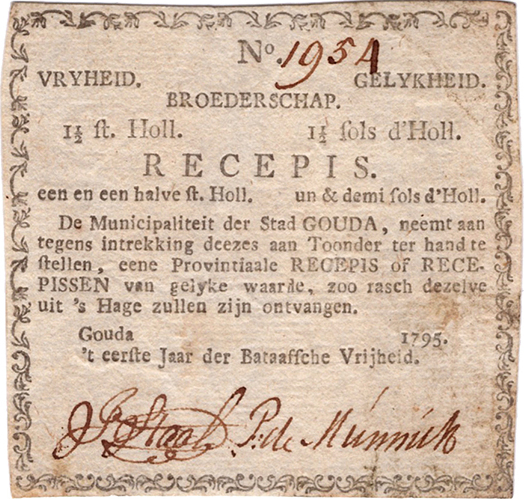 No. 1954
VRYHEID. GELYKHEID.
BROEDERSCHAP.
1½ ſt. Holl. 1½ ſols d'Holl.
RECEPIS.
een en een halve ſt. Holl. un & demi ſols d'Holl.
De Municipaliteit der Stad GOUDA, neemt aan
tegens intrekking deezes aan Toonder ter hand te
ſtellen, eene Provintiaale RECEPIS of RECE-
PISSEN van gelyke waarde, zoo rasch dezelve
uit 's Hage zullen zijn ontvangen.
Gouda 1795.
't eerſte Jaar der Bataaffche Vrijheid.
Staal P. de Münnick